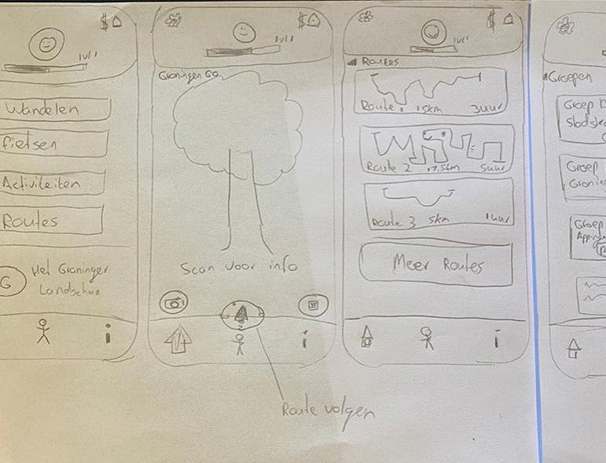 lvl 1
Wandelen
Fietsen
Activiteiten
Routes
G
Het Groninger
Landschap
i
$
lvl 1
Groningen GO
Scan voor info
i
Route volgen
$
lvl 1
Routes
Route 1 15km 3uur
Route 2 17,5km 5uur
Route 3 5km 1uur
Meer Routes
i
Groepen
Groep
Groep
Groep